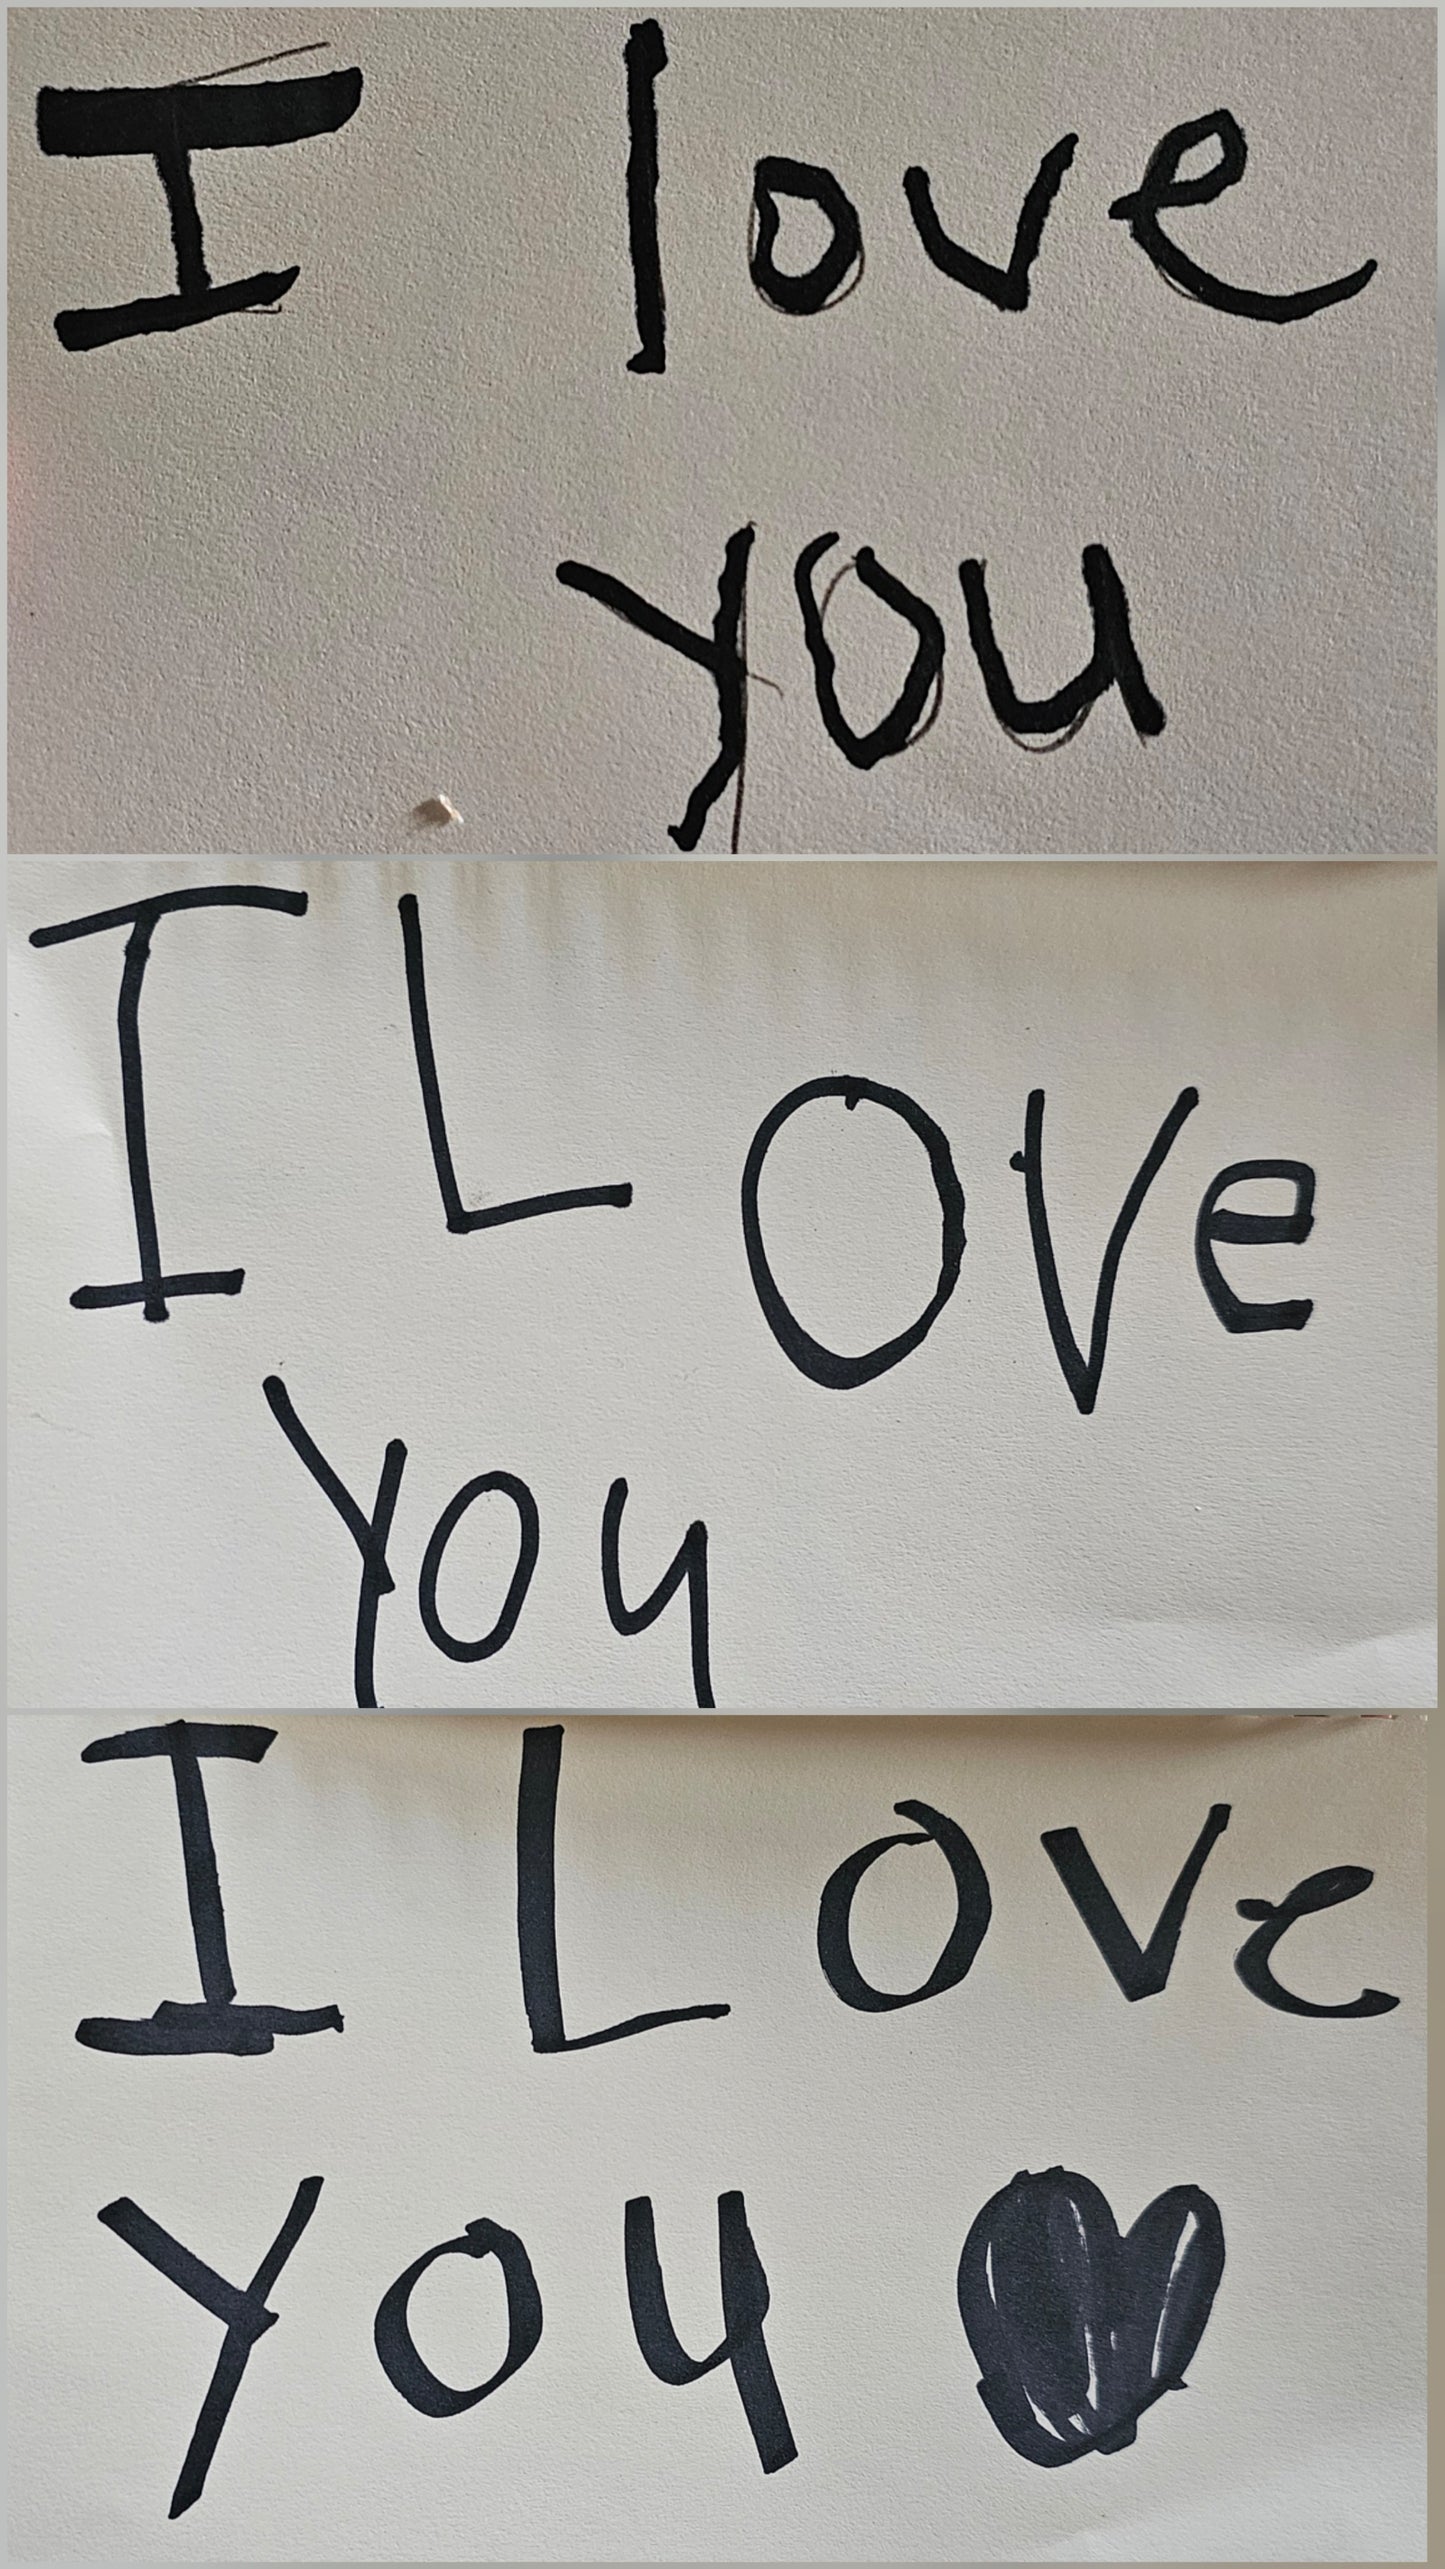 I love
you
I LOVe
you
I LOVe
you